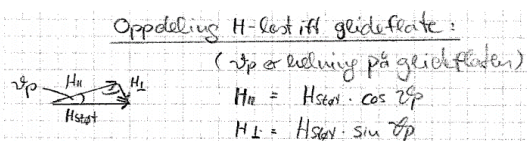 Oppdeling H-last ift glideflate:
(ϑp er helning på glideflaten)
ϑp H∥ H⊥
Hstøt
H∥ = Hstøt · cos ϑp
H⊥ = Hstøt · sin ϑp